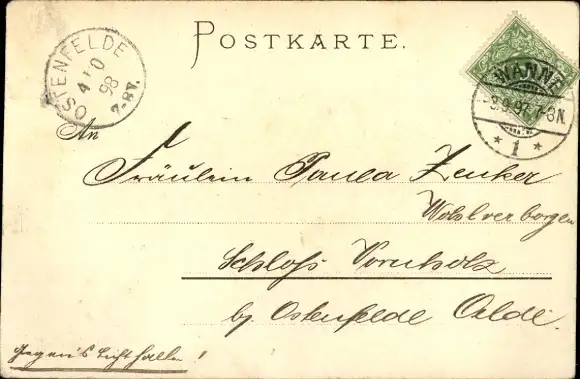 POSTKARTE.
OSTENFELDE
4 10
98
7-8V.
WANNE
3.9.97. 7-8N.
* 1 *
An
Fräulein Paula Zenker
Wohlverborgen
Schloß Vornholz
by Ostenfelde Oelde.
Gegen's Licht halten!